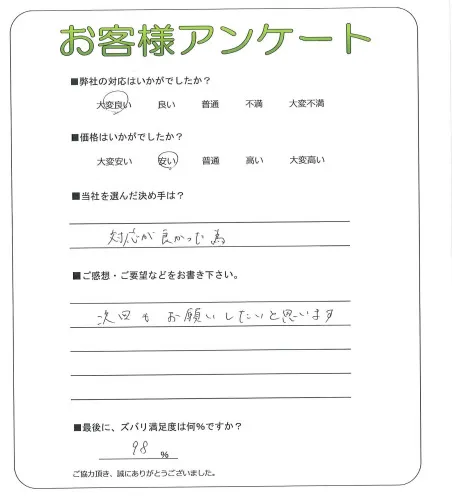 お客様アンケート
■弊社の対応はいかがでしたか？
大変良い 良い 普通 不満 大変不満
■価格はいかがでしたか？
大変安い 安い 普通 高い 大変高い
■当社を選んだ決め手は？
対応が良かった為
■ご感想・ご要望などをお書き下さい。
次回もお願いしたいと思います
■最後に、ズバリ満足度は何％ですか？
98 %
ご協力頂き、誠にありがとうございました。